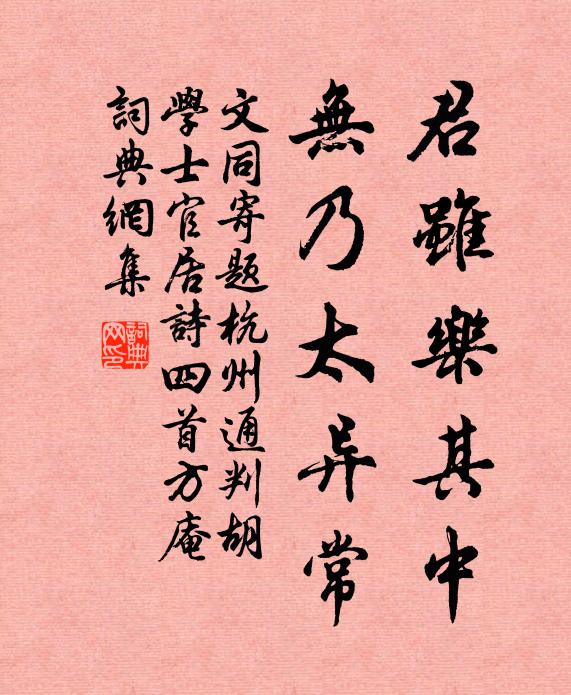 君雖樂其中
無乃太异常
文同寄題杭州通判胡
學士官居詩四首方庵
詞典網集
詞典
网印